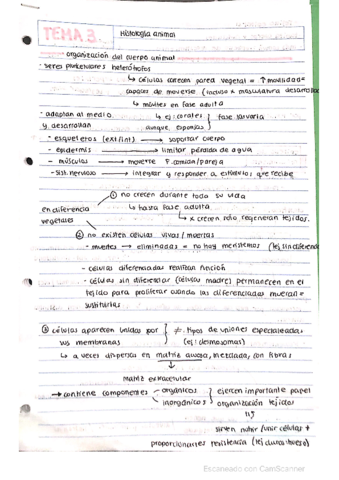 TEMA 3. Histología animal
organización del cuerpo animal
- seres pluricelulares heterótrofos
↳ células carecen pared vegetal = ↑ movilidad =
capaces de moverse (incluso x musculatura desarrollada
↳ móviles en fase adulta
- adaptan al medio ↳ ej: corales fase larvaria
y desarrollan aunque, esponjas
- esqueletos (ext/int) → soportar cuerpo
- epidermis → limitar pérdida de agua
- músculos → moverse P. comida/pareja
- Sist. nervioso → integrar y responder a estímulos que recibe
① no crecen durante toda su vida
en diferencia ↳ hasta fase adulta
vegetales ↳ x crecen sólo regeneran tejidos.
② no existen células vivas/muertas
- muertas → eliminadas = no hay meristemos (tej sin diferenc
- células diferenciadas realizan función
- células sin diferenciar (células madre) permanecen en el
tejido para proliferar cuando las diferenciadas mueran =
sustituirlas
③ células aparecen unidas por ≠ tipos de uniones especializadas
sus membranas (ej: desmosomas)
↳ a veces dispersa en matriz acuosa, mezclada, con fibras
↓
matriz extracelular
→ contiene componentes orgánicos ejercen importante papel
inorgánicos organización tejidos
sirven nutrir/unir células +
proporcionarles resistencia (tej duros: hueso)
Escaneado con CamScanner